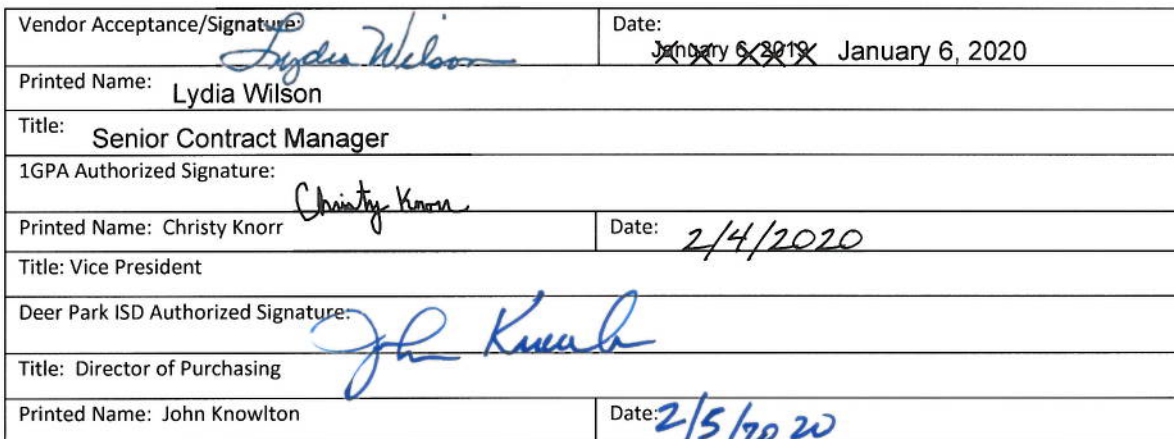 Vendor Acceptance/Signature: Lydia Wilson
Date: January 6, 2019 January 6, 2020
Printed Name: Lydia Wilson
Title: Senior Contract Manager
1GPA Authorized Signature: Christy Knorr
Printed Name: Christy Knorr
Date: 2/4/2020
Title: Vice President
Deer Park ISD Authorized Signature: John
Title: Director of Purchasing
Printed Name: John Knowlton
Date: 2/5/2020